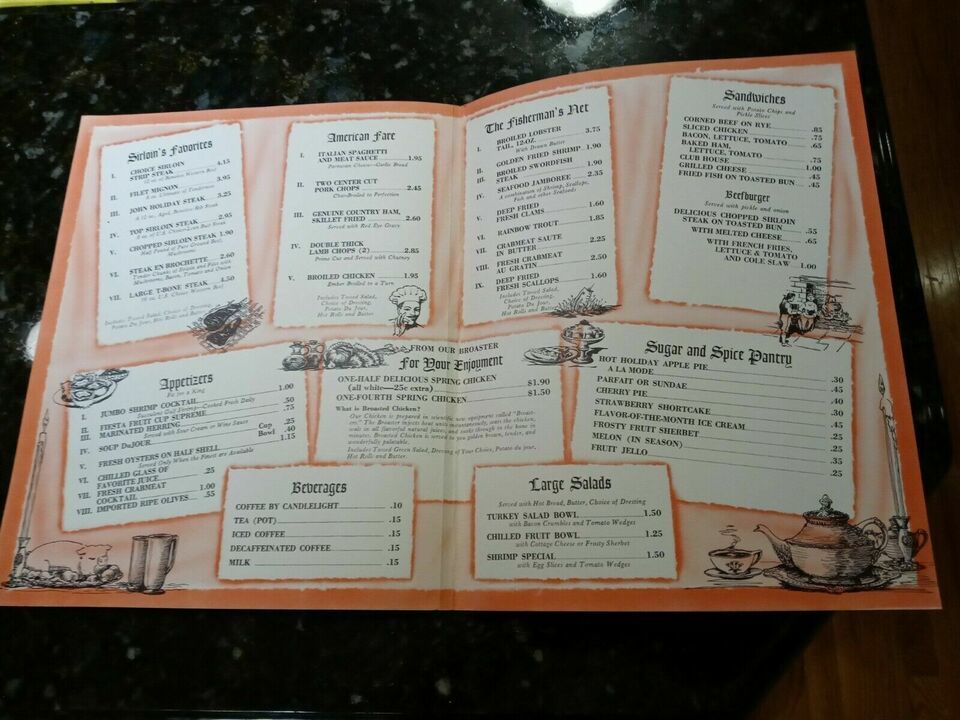 Sirloin's Favorites
I. CHOICE SIRLOIN
STRIP STEAK 4.15
12 oz. of Boneless Western Beef
II. FILET MIGNON 3.95
8 oz. Ultimate of Tenderness
III. JOHN HOLIDAY STEAK 3.25
A 12 oz. Aged, Boneless Rib Steak
IV. TOP SIRLOIN STEAK 2.95
8 oz. of U.S. Choice—Lean Butt Steak
V. CHOPPED SIRLOIN STEAK 1.90
Half Pound of Pure Ground Beef,
Mushrooms
VI. STEAK EN BROCHETTE 2.60
Tender Chunks of Sirloin and Filet with
Mushrooms, Bacon, Tomato and Onion
VII. LARGE T-BONE STEAK 4.50
16 oz. U.S. Choice Western Beef
Includes Tossed Salad,
Choice of Dressing,
Potato Du Jour, Hot Rolls and Butter
American Fare
I. ITALIAN SPAGHETTI
AND MEAT SAUCE 1.95
Parmesan Cheese—Garlic Bread
II. TWO CENTER CUT
PORK CHOPS 2.45
Char-Broiled to Perfection
III. GENUINE COUNTRY HAM,
SKILLET FRIED 2.60
Served with Red Eye Gravy
IV. DOUBLE THICK
LAMB CHOPS (2) 2.85
Prime Cut and Served with Chutney
V. BROILED CHICKEN 1.95
Ember Broiled to a Turn
Includes Tossed Salad,
Choice of Dressing,
Potato Du Jour,
Hot Rolls and Butter
The Fisherman's Net
I. BROILED LOBSTER
TAIL, 12-OZ. 3.75
With Drawn Butter
II. GOLDEN FRIED SHRIMP 1.90
III. BROILED SWORDFISH
STEAK 1.90
IV. SEAFOOD JAMBOREE 2.35
A combination of Shrimp, Scallops,
Fish and other Seafoods
V. DEEP FRIED
FRESH CLAMS 1.60
VI. RAINBOW TROUT 1.85
VII. CRABMEAT SAUTE
IN BUTTER 2.25
VIII. FRESH CRABMEAT
AU GRATIN 2.50
IX. DEEP FRIED
FRESH SCALLOPS 1.60
Includes Tossed Salad,
Choice of Dressing,
Potato Du Jour,
Hot Rolls and Butter
Sandwiches
Served with Potato Chips and
Pickle Slices
CORNED BEEF ON RYE .85
SLICED CHICKEN .75
BACON, LETTUCE, TOMATO .65
BAKED HAM,
LETTUCE, TOMATO .75
CLUB HOUSE 1.00
GRILLED CHEESE .45
FRIED FISH ON TOASTED BUN .45
Beefburger
Served with pickle and onion
DELICIOUS CHOPPED SIRLOIN
STEAK ON TOASTED BUN .55
WITH MELTED CHEESE .65
WITH FRENCH FRIES,
LETTUCE & TOMATO
AND COLE SLAW 1.00
Appetizers
Fit for a King
I. JUMBO SHRIMP COCKTAIL 1.00
Succulent Gulf Shrimp—Cooked Fresh Daily
II. FIESTA FRUIT CUP SUPREME .50
III. MARINATED HERRING .75
Served with Sour Cream or Wine Sauce
IV. SOUP DuJOUR Cup .25
Bowl .40
V. FRESH OYSTERS ON HALF SHELL 1.15
Served Only When the Finest are Available
VI. CHILLED GLASS OF
FAVORITE JUICE .25
VII. FRESH CRABMEAT
COCKTAIL 1.00
VIII. IMPORTED RIPE OLIVES .55
FROM OUR BROASTER
For Your Enjoyment
ONE-HALF DELICIOUS SPRING CHICKEN $1.90
(all white—25c extra)
ONE-FOURTH SPRING CHICKEN $1.50
What is Broasted Chicken?
Our Chicken is prepared in scientific new equipment called "Broas-
ter." The Broaster injects heat units instantaneously, sears the chicken,
seals in all flavorful natural juices, and cooks through to the bone in
minutes. Broasted Chicken is served to you golden brown, tender, and
wonderfully palatable.
Includes Tossed Green Salad, Dressing of Your Choice, Potato du jour,
Hot Rolls and Butter.
Sugar and Spice Pantry
HOT HOLIDAY APPLE PIE
A LA MODE .30
PARFAIT OR SUNDAE .45
CHERRY PIE .30
STRAWBERRY SHORTCAKE .40
FLAVOR-OF-THE-MONTH ICE CREAM .25
FROSTY FRUIT SHERBET .25
MELON (IN SEASON) .35
FRUIT JELLO .25
Beverages
COFFEE BY CANDLELIGHT .10
TEA (POT) .15
ICED COFFEE .15
DECAFFEINATED COFFEE .15
MILK .15
Large Salads
Served with Hot Bread, Butter, Choice of Dressing
TURKEY SALAD BOWL 1.50
with Bacon Crumbles and Tomato Wedges
CHILLED FRUIT BOWL 1.25
with Cottage Cheese or Frosty Sherbet
SHRIMP SPECIAL 1.50
with Egg Slices and Tomato Wedges